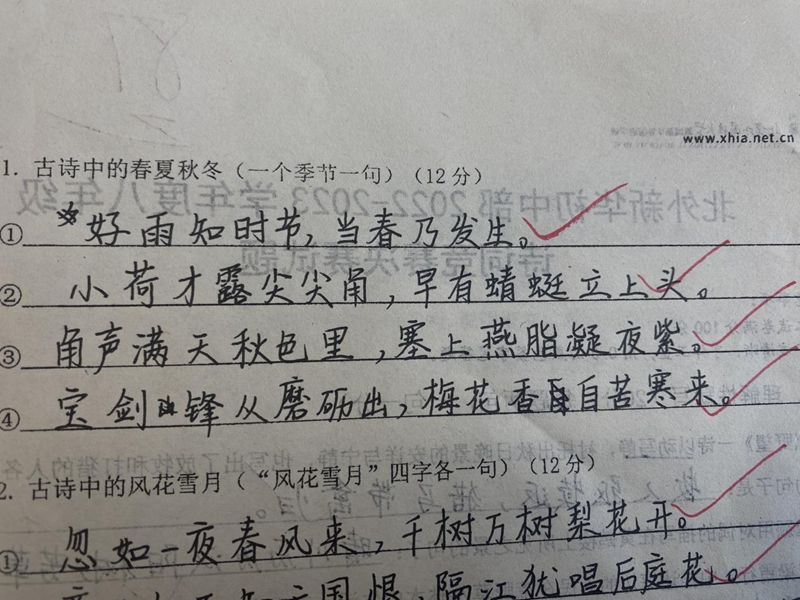 www.xhia.net.cn
1. 古诗中的春夏秋冬（一个季节一句）（12分）
① 好雨知时节，当春乃发生。
② 小荷才露尖尖角，早有蜻蜓立上头。
③ 角声满天秋色里，塞上燕脂凝夜紫。
④ 宝剑锋从磨砺出，梅花香自苦寒来。
2. 古诗中的风花雪月（“风花雪月”四字各一句）（12分）
① 忽如一夜春风来，千树万树梨花开。
国恨，隔江犹唱后庭花。